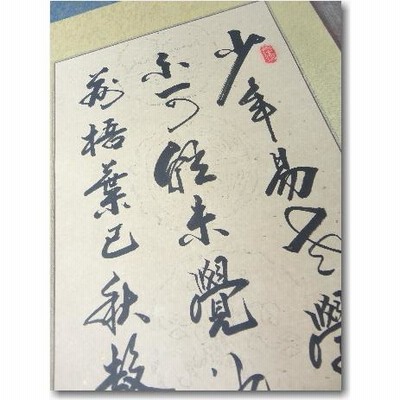 少年易老學
不可軽未覺
前梧葉已秋聲